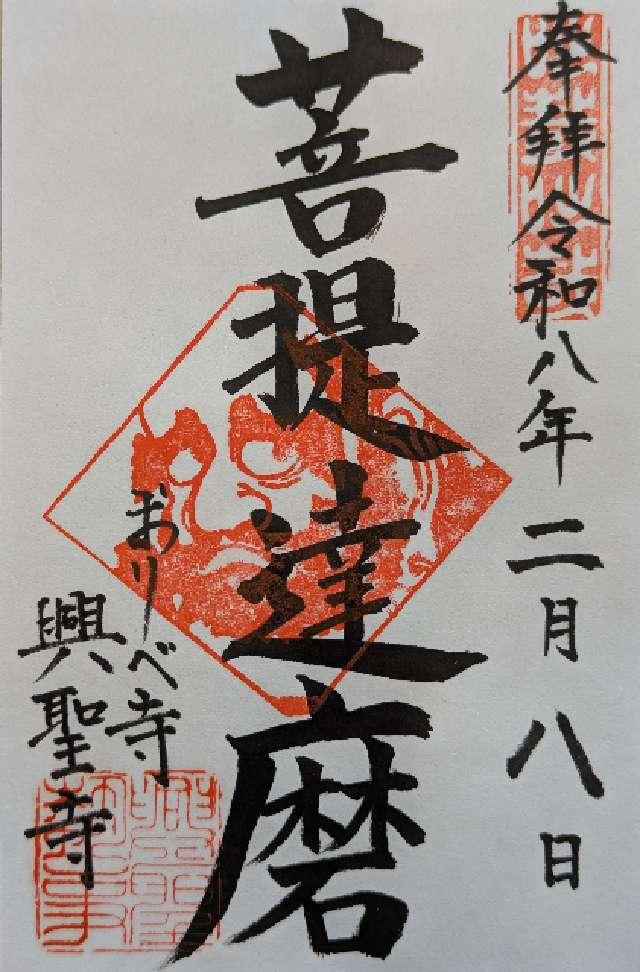 奉拝令和八年二月八日
菩提達磨
おりべ寺
興聖寺